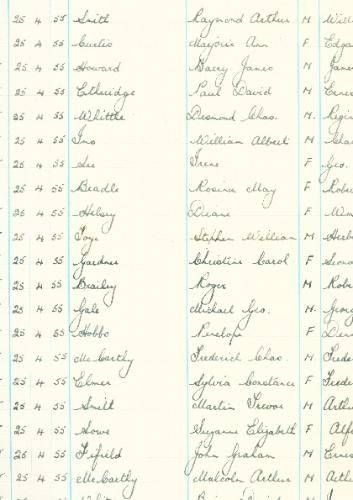 25 4 55 Smith Raymond Arthur M Will
25 4 55 Curtis Marjorie Ann F Edga
25 4 55 Howard Barry James M James
25 4 55 Etheridge Paul David M Ernes
25 4 55 Whittle Desmond Chas. M. Regin
25 4 55 William Albert M Chas
25 4 55 Irene F Geo.
25 4 55 Beadle Rosina May F Rober
25 4 55 Helsey Diane F
25 4 55 Stephen William M Herb
25 4 55 Gardner Christine Carol F
25 4 55 Brailey Roger M Robe
25 4 55 Gale Michael Geo. M. Georg
25 4 55 Hobbs Penelope F
25 4 55 McCarthy Frederick Chas. M Frede
25 4 55 Elmer Sylvia Constance F Frede
25 4 55 Smith Martin Trevor M Arthu
25 4 55 Suzanne Elizabeth F Alf
25 4 55 Fifield John Graham M Ernes
25 4 55 McCarthy Malcolm Arthur M Arth